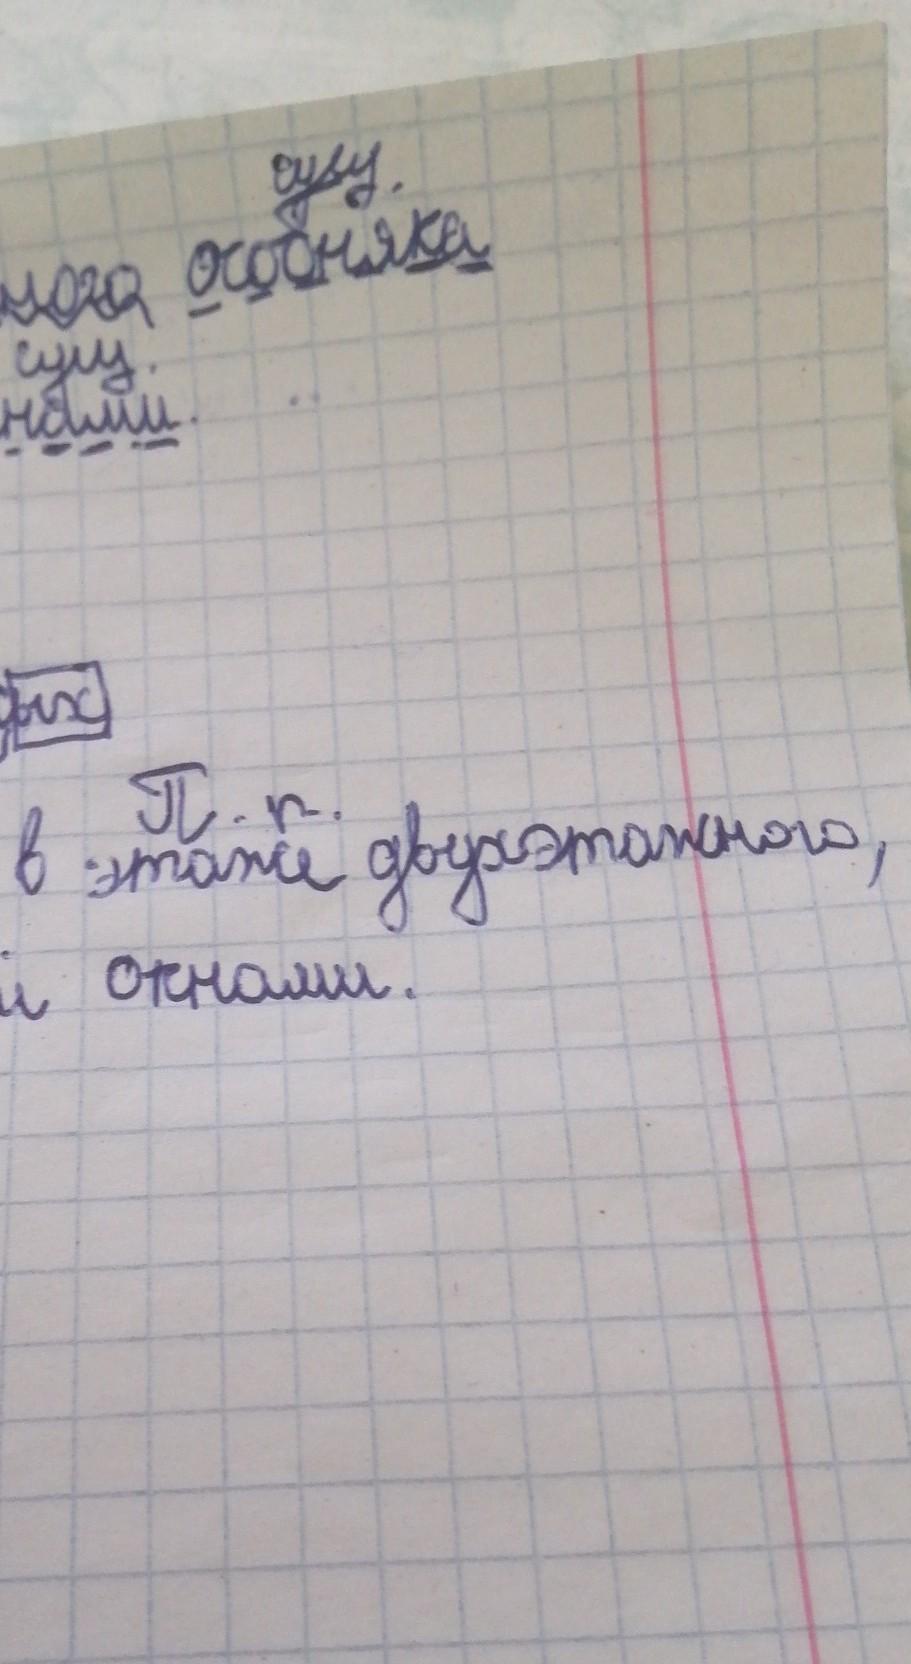 сущ.
ного особняка
сущ.
нами.
ых
П.п.
в этаже двухэтажного,
и окнами.